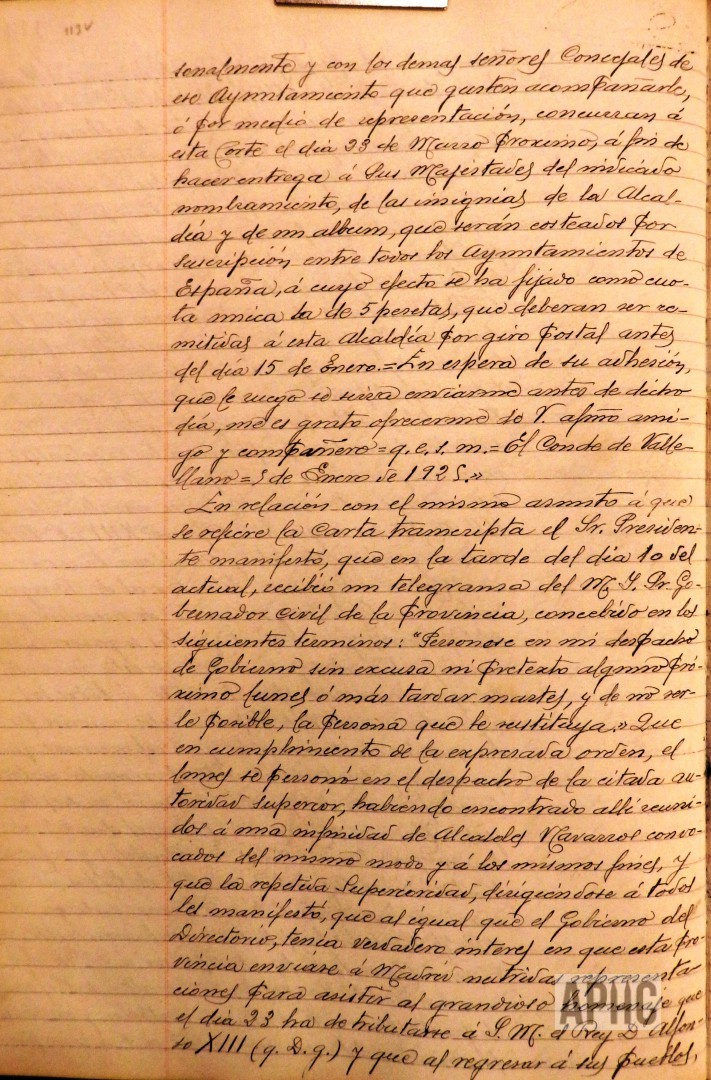 113v
sonalmente y con los demas señores Concejales de
ese Ayuntamiento que gusten acompañarle,
ó por medio de representación, concurran á
esta Corte el dia 23 de Marzo proximo, á fin de
hacer entrega á Sus Majestades del indicado
nombramiento, de las insignias de la Alcal-
día y de un album, que serán costeados por
suscripción entre todos los Ayuntamientos de
España, á cuyo efecto se ha fijado como cuo-
ta unica la de 5 pesetas, que deberan ser re-
mitidas á esta Alcaldía por giro postal antes
del dia 15 de Enero.=En espera de su adhesión,
que le ruego se sirva enviarme antes de dicho
día, me es grato ofrecerme de V. afmo ami-
go y compañero=q. e. s. m.=El Conde de Valle-
llano=5 de Enero de 1925.»
En relación con el mismo asunto á que
se refiere la carta transcripta el Sr. Presiden-
te manifestó, que en la tarde del dia 10 del
actual, recibió un telegrama del M. I. Sr. Go-
bernador civil de la provincia, concebido en los
siguientes terminos: "Personese en mi despacho
de Gobierno sin excusa ni pretexto alguno pró-
ximo lunes ó más tardar martes, y de no ser-
le posible, la persona que le sustituya.» Que
en cumplimiento de la expresada orden, el
lunes se personó en el despacho de la citada au-
toridad superior, habiendo encontrado allí reuni-
dos á una infinidad de Alcaldes Navarros convo-
cados del mismo modo y á los mismos fines, y
que la repetida Superioridad, dirigiéndose á todos
les manifestó, que al igual que el Gobierno del
Directorio, tenía verdadero interes en que esta pro-
vincia enviáse á Madrid nutridas representa
ciones para asistir al grandioso homenaje que
el dia 23 ha de tributarse á S. M. el Rey D. Alfon-
so XIII (q. D. g.) y que al regresar á sus pueblos,
APHC